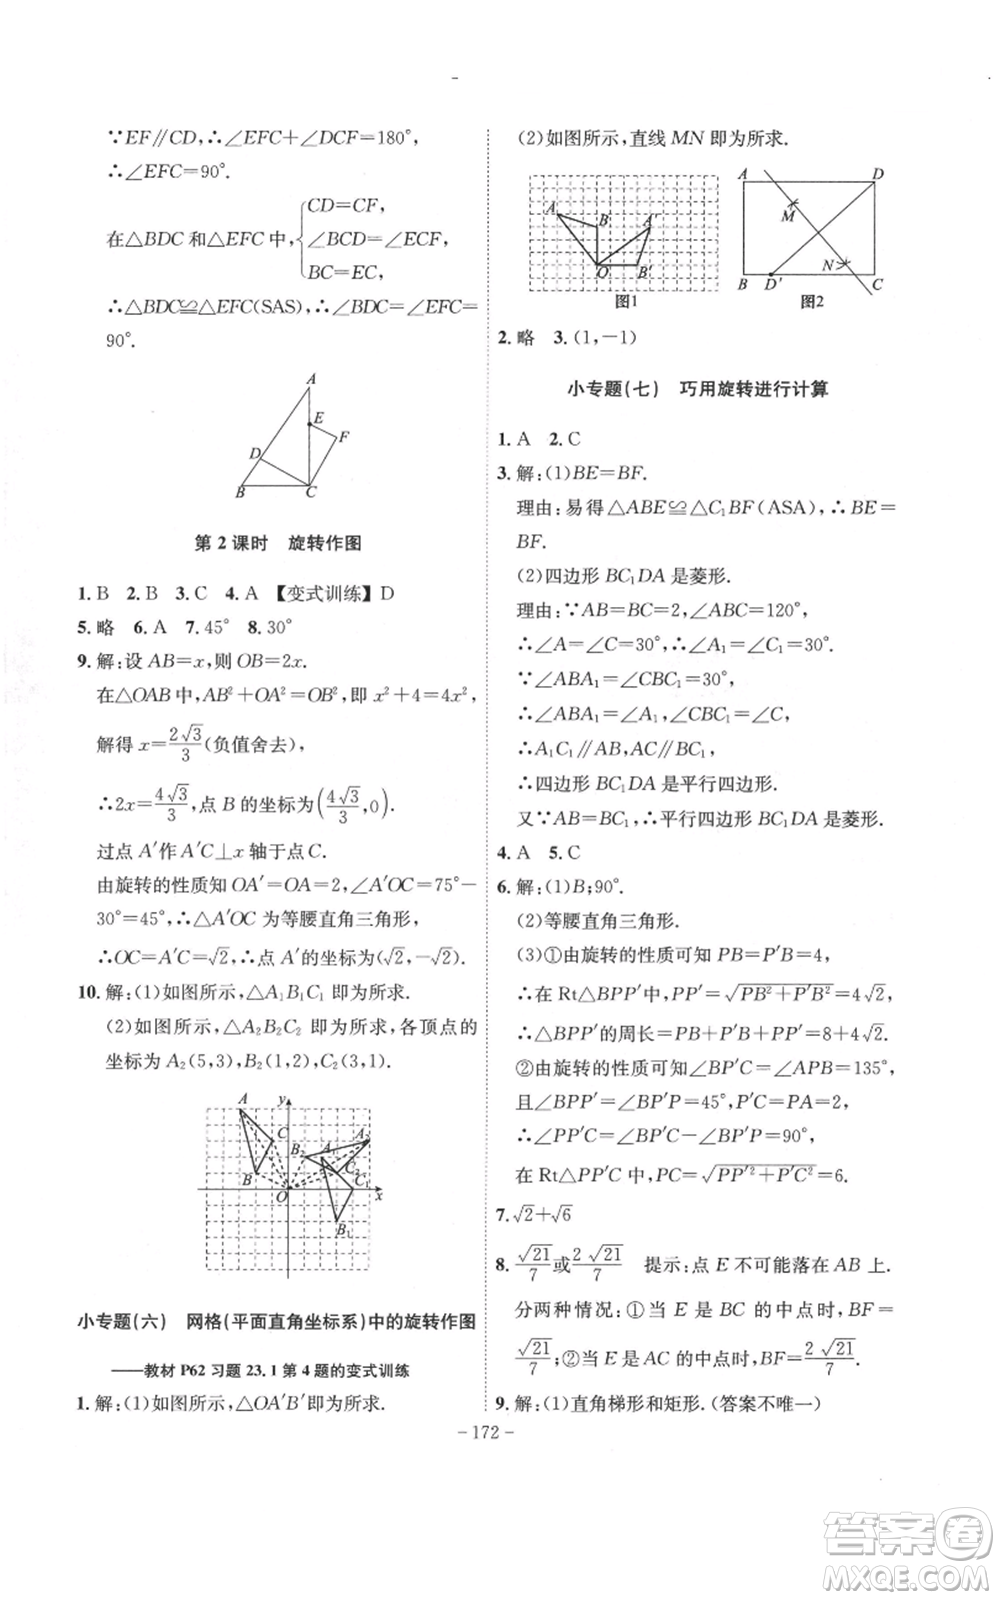 ∵EF∥CD,∴∠EFC+∠DCF=180°,
∴∠EFC=90°.
在△BDC和△EFC中,
CD=CF,
∠BCD=∠ECF,
BC=EC,
∴△BDC≌△EFC(SAS),∴∠BDC=∠EFC=
90°.
A
E
F
D
B
C
第2课时 旋转作图
1. B 2. B 3. C 4. A 【变式训练】D
5. 略 6. A 7. 45° 8. 30°
9. 解:设AB=x,则OB=2x.
在△OAB中,AB²+OA²=OB²,即x²+4=4x²,
解得x=2√3/3(负值舍去).
∴2x=4√3/3,点B的坐标为(4√3/3,0).
过点A′作A′C⊥x轴于点C.
由旋转的性质知OA′=OA=2,∠A′OC=75°-
30°=45°,∴△A′OC为等腰直角三角形,
∴OC=A′C=√2,∴点A′的坐标为(√2,-√2).
10. 解:(1)如图所示,△A₁B₁C₁即为所求.
(2)如图所示,△A₂B₂C₂即为所求,各顶点的
坐标为A₂(5,3),B₂(1,2),C₂(3,1).
A y
C B₂ A₁ A₂
B C₂ C₁
O x
B₁
小专题(六) 网格(平面直角坐标系)中的旋转作图
——教材P62习题23.1第4题的变式训练
1. 解:(1)如图所示,△OA′B′即为所求.
(2)如图所示,直线MN即为所求.
A B A′
O B′
图1
A D
M
N
B D′ C
图2
2. 略 3. (1,-1)
小专题(七) 巧用旋转进行计算
1. A 2. C
3. 解:(1)BE=BF.
理由:易得△ABE≌△C₁BF(ASA),∴BE=
BF.
(2)四边形BC₁DA是菱形.
理由:∵AB=BC=2,∠ABC=120°,
∴∠A=∠C=30°,∴∠A₁=∠C₁=30°.
∵∠ABA₁=∠CBC₁=30°,
∴∠ABA₁=∠A₁,∠CBC₁=∠C,
∴A₁C₁∥AB,AC∥BC₁,
∴四边形BC₁DA是平行四边形.
又∵AB=BC₁,∴平行四边形BC₁DA是菱形.
4. A 5. C
6. 解:(1)B;90°.
(2)等腰直角三角形.
(3)①由旋转的性质可知PB=P′B=4,
∴在Rt△BPP′中,PP′=√(PB²+P′B²)=4√2,
∴△BPP′的周长=PB+P′B+PP′=8+4√2.
②由旋转的性质可知∠BP′C=∠APB=135°,
且∠BPP′=∠BP′P=45°,P′C=PA=2,
∴∠PP′C=∠BP′C-∠BP′P=90°,
在Rt△PP′C中,PC=√(PP′²+P′C²)=6.
7. √2+√6
8. √21/7或2√21/7 提示:点E不可能落在AB上.
分两种情况:①当E是BC的中点时,BF=
√21/7;②当E是AC的中点时,BF=2√21/7.
9. 解:(1)直角梯形和矩形.(答案不唯一)
- 172 -
答案卷
MXQE.COM